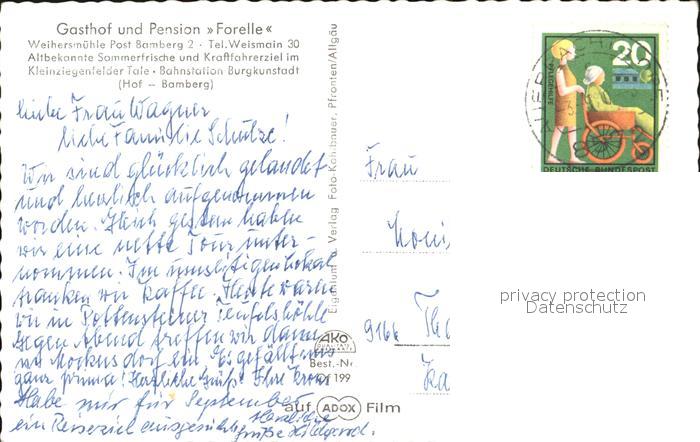 Gasthof und Pension »Forelle«
Weihersmühle Post Bamberg 2 · Tel. Weismain 30
Altbekannte Sommerfrische und Kraftfahrerziel im
Kleinziegenfelder Tale · Bahnstation Burgkunstadt
(Hof – Bamberg)
Liebe Frau Wagner
liebe Familie Schulze!
Wir sind glücklich gelandet
und herzlich aufgenommen
worden. Gleich gestern haben
wir eine nette Tour unter-
nommen. Im umseitigen Lokal
tranken wir Kaffee. Heute waren
wir in Pottensteiner Teufelshöhle
Gegen Abend treffen wir dann
ein. Es gefällt uns
ganz prima! Herzliche Grüße Ihre
Habe mir für September
ein Reiseziel ausgesucht. Herzliche
Grüße Hildegard.
Eigentum u. Verlag Foto-Kohlbauer, Pfronten/Allgäu
AKO
Best.-Nr.
199
auf ADOX Film
20
PFLEGEHILFE
DEUTSCHE BUNDESPOST
Frau
9166
privacy protection
Datenschutz